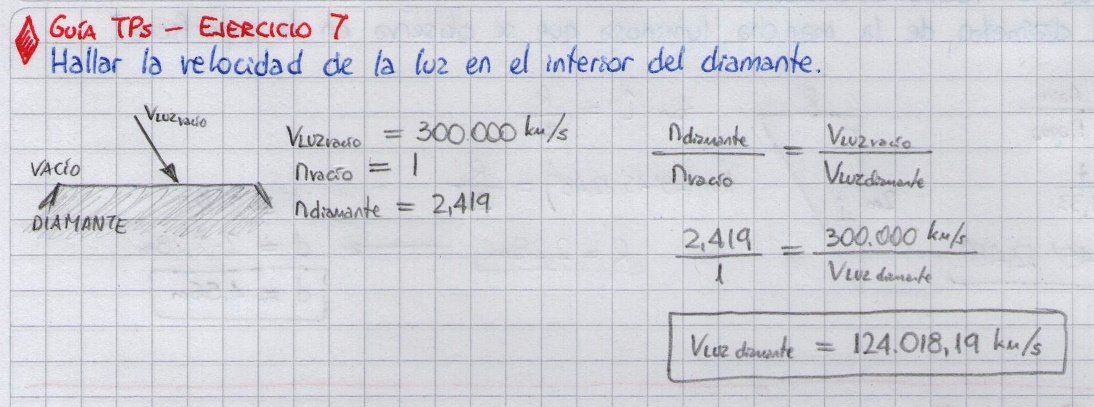 GUÍA TPs – EJERCICIO 7
Hallar la velocidad de la luz en el interior del diamante.
VLUZvacío
VACÍO
DIAMANTE
VLUZvacío = 300.000 km/s
nvacío = 1
ndiamante = 2,419
ndiamante / nvacío = VLUZvacío / VLUZdiamante
2,419 / 1 = 300.000 km/s / VLUZ diamante
VLUZ diamante = 124.018,19 km/s